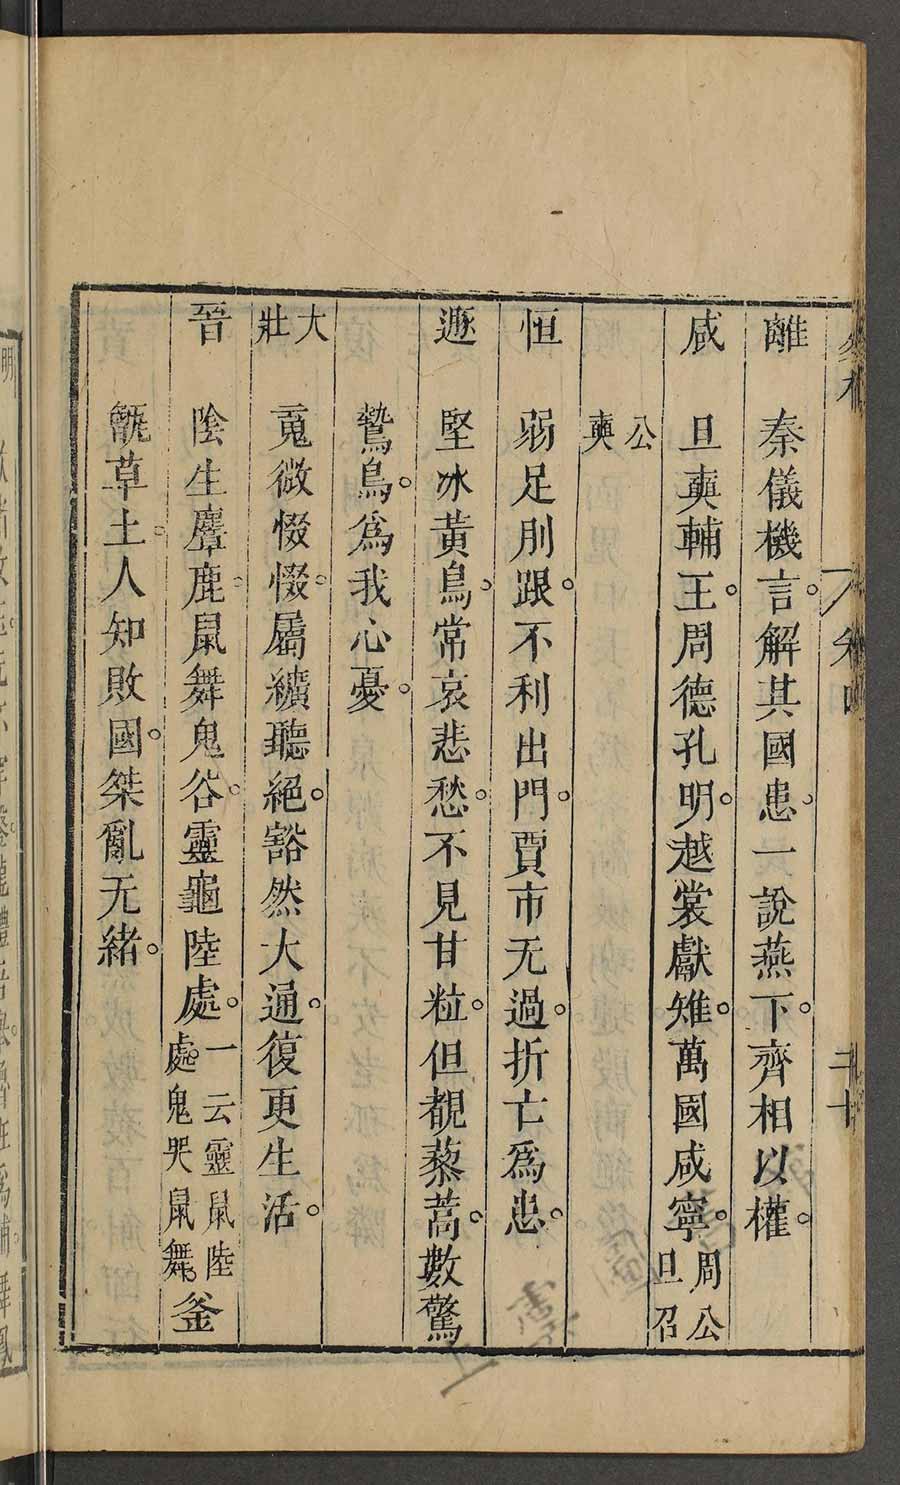 離 秦儀機言。解其國患。一說燕下。齊相以權。
咸 旦奭輔王。周德孔明。越裳獻雉。萬國咸寧。周公旦召
公奭
恒 弱足刖跟。不利出門。賈市无過。折亡爲患。
遯 堅冰黃鳥。常哀悲愁。不見甘粒。但覩藜蒿。數驚
鷙鳥。爲我心憂。
大壯 䰟微惙惙。屬纊聽絕。豁然大通。復更生活。
晉 陰生麞鹿。鼠舞鬼谷。靈龜陸處。一云靈鼠陸處。鬼哭鼠舞。釜
甑草土。人知敗國。桀亂无緒。
卷四
二十